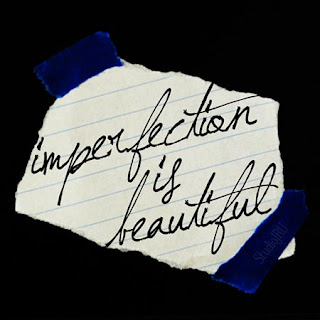 imperfection
is
beautiful